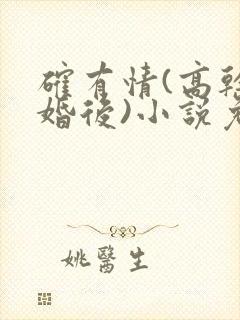 確有情(高幹
婚後)小說
姚醫生